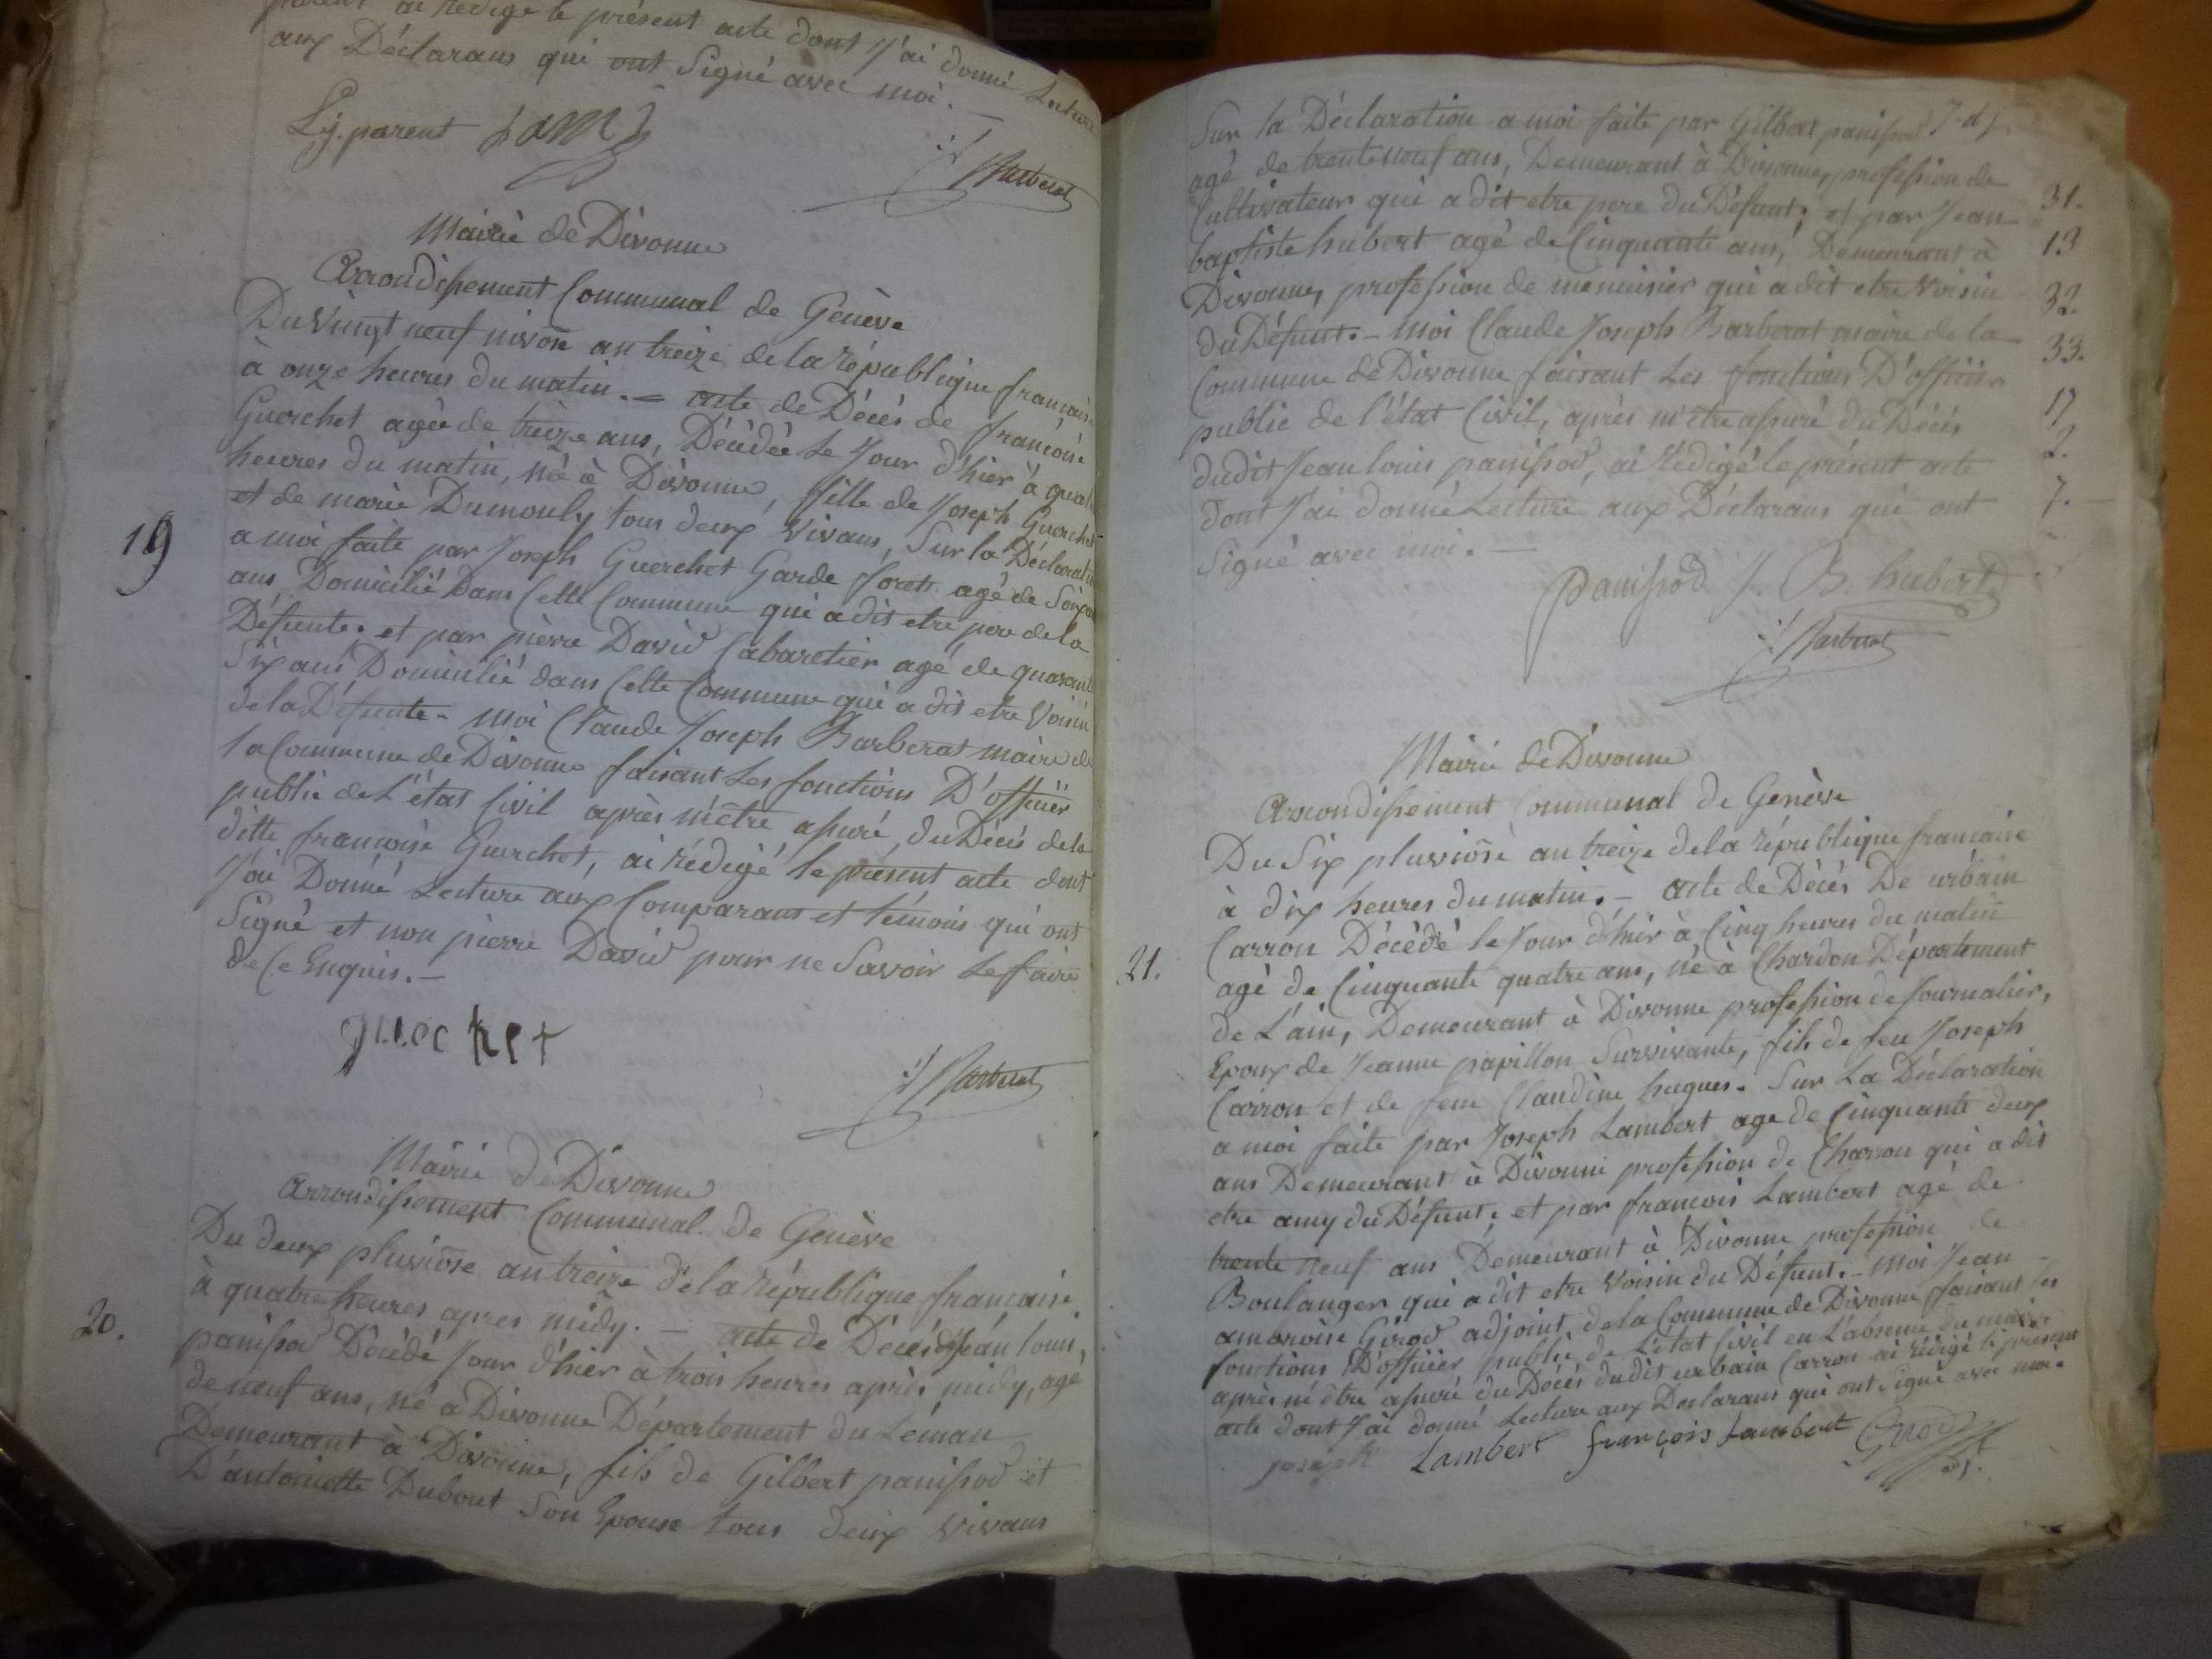 ai rédigé le présent acte dont J'ai donné Lecture
aux Déclarans qui ont Signé avec moi. —
Ly. parent
Barberat
Mairie de Divonne
Arrondissement Communal de Genève
Du Vingt neuf nivose an treize de la république française
à onze heures du matin. — acte de Décès de françoise
Guerchet agée de treize ans, Décédée Le Jour d'hier à quatre
heures du matin, né à Divonne, fille de Joseph Guerchet
et de marie Dumouly tous deux Vivans, Sur la Déclaration
19
a moi faite par Joseph Guerchet Garde foret agé de
ans Domicilié Dans Cette Commune qui a dit etre pere de la
Défunte. et par pierre David Cabaretier agé de quarante
Six ans Domicilié dans Cette Commune qui a dit etre Voisin
de la Défunte. Moi Claude Joseph Barberat maire de
la Commune de Divonne faisant Les fonctions D'officier
public de L'état Civil après m'être assuré du Décès de la
dette françoise Guerchet, ai rédigé le présent acte dont
J'ai Donné Lecture aux Comparans et témoins qui ont
Signé et non pierre David pour ne Savoir Le faire
de Ce Enquis. —
guerchet
Barberat
Mairie de Divonne
Arrondissement Communal de Genève
Du deux pluviose an treize de la république française
à quatre heures apres midy. — acte de Décès de Jean louis
20.
panissod Décédé Jour d'hier à trois heures après midy, agé
de neuf ans, né à Divonne Département du Léman
Demeurant à Divonne, fils de Gilbert panissod et
D'antoinette Dubout Son Epouse tous deux Vivans
Sur la Déclaration a moi faite par Gilbert panissod
agé de trente neuf ans, Demeurant à Divonne, profession de
Cultivateur qui a dit etre pere du Défunt; et par Jean
31.
baptiste hubert agé de Cinquante ans, Demeurant à
13
Divonne, profession de menuisier qui a dit etre Voisin
32.
du Défunt. — Moi Claude Joseph Barberat maire de la
33.
Commune de Divonne faisant Les fonctions D'officier
public de l'état Civil, après m'être assuré du Décès
17
dudit Jean louis panissod, ai rédigé le présent acte
2.
dont J'ai donné Lecture aux Déclarans qui ont
7.
Signé avec moi. —
panissod J. B. hubert
Barberat
Mairie de Divonne
Arrondissement Communal de Genève
Du Six pluviose an treize de la république française
à dix heures du matin. — acte de Décès De urbain
Carron Décédé le Jour d'hier à Cinq heures du matin
21.
agé de Cinquante quatre ans, né à Chardon Département
de L'ain, Demeurant à Divonne profession de Journalier,
Epoux de Jeanne papillon Survivante, fils de feu Joseph
Carron et de feue Claudine hugues. Sur La Déclaration
a moi faite par Joseph Lambert age de Cinquante deux
ans Demeurant à Divonne profession de Charron qui a dit
etre amy du Défunt; et par francois Lambert agé de
trente neuf ans Demeurant à Divonne profession de
Boulanger qui a dit etre Voisin du Défunt. — Moi Jean
ambroise Girod adjoint de la Commune de Divonne faisant les
fonctions D'officier public de L'état Civil en L'absence du maire
après m'être assuré du Décès dudit urbain Carron ai rédigé le présent
acte dont J'ai donné Lecture aux Declarans qui ont Signé avec moi.
joseph Lambert françois Lambert Girod